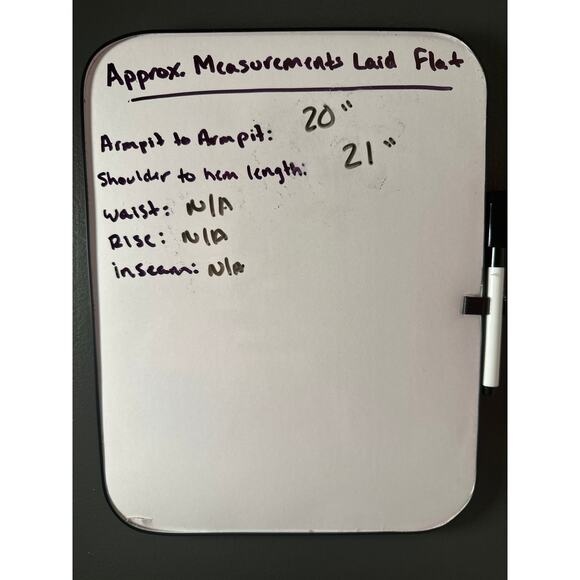 Approx. Measurements Laid Flat
Armpit to Armpit: 20"
Shoulder to hem length: 21"
waist: N/A
Rise: N/A
inseam: N/A